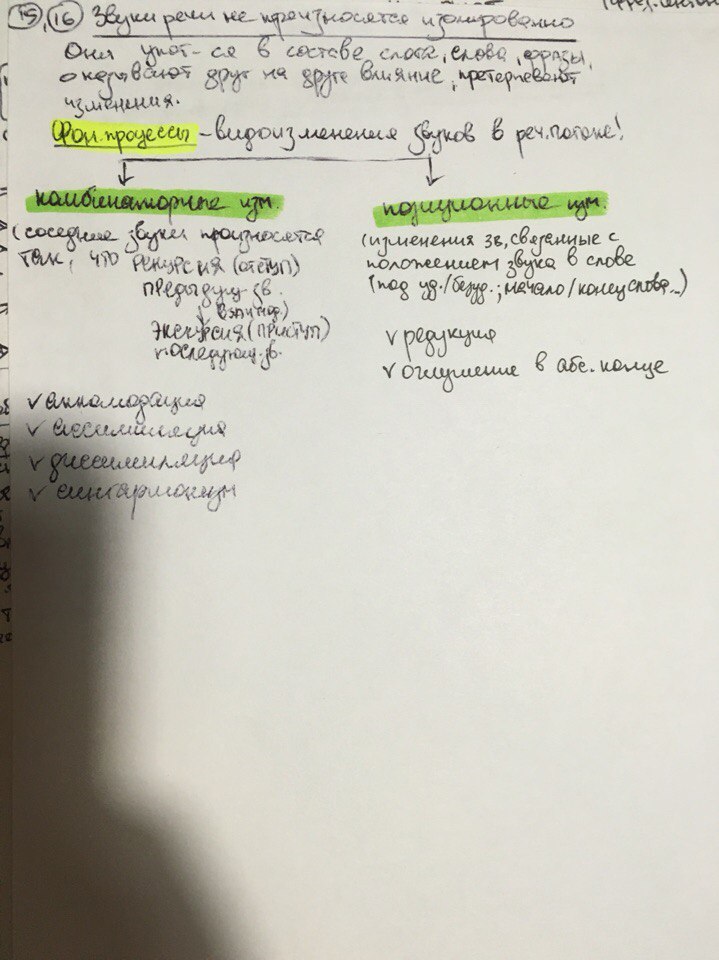 15, 16 Звуки речи не произносятся изолированно
Они упот-ся в составе слога, слова, фразы,
оказывают друг на друга влияние, претерпевают
изменения.
Фон. процессы - видоизменения звуков в реч. потоке!
комбинаторные изм.
(соседние звуки произносятся
так, что РЕКУРСИЯ (ОТСТУП)
предыдущ. зв.
ЭКСКУРСИЯ (ПРИСТУП)
последующ. зв.
v аккомодация
v ассимиляция
v диссимиляция
v сингармонизм
позиционные изм.
(изменения зв, связанные с
положением звука в слове
(под уд./безуд.; начало/конец слова...)
v редукция
v оглушение в абс. конце